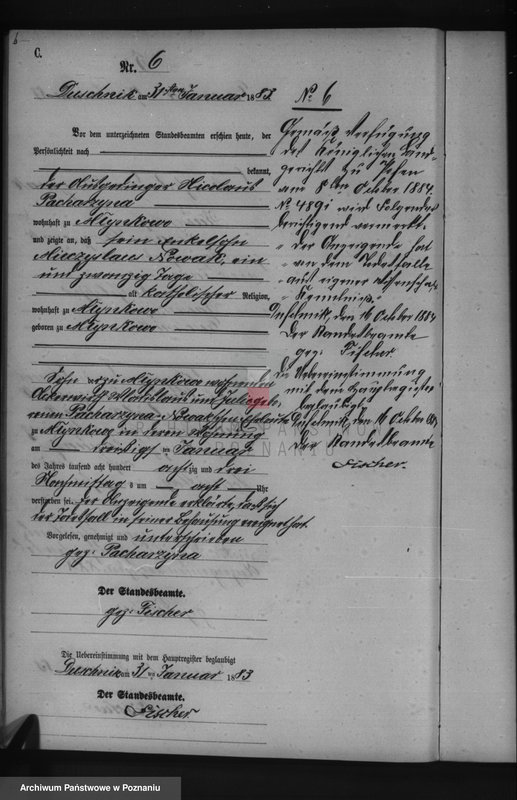 6
C.
Nr. 6
Duschnik am 31sten Januar 1883.
Vor dem unterzeichneten Standesbeamten erschien heute, der
Persönlichkeit nach
bekannt,
der Ausgedinger Nicolaus
Pacharzyna
wohnhaft zu Mlynkowo
und zeigte an, daß sein Enkelsohn
Mieczyslaus Nowak, ein
und zwanzig Tage
alt katholischer Religion,
wohnhaft zu Mlynkowo
geboren zu Mlynkowo
Sohn der zu Mlynkowo wohnenden
Ackerwirth Wladislaus und
geb. Pacharzyna-Nowakschen Eheleute
zu Mlynkowo in deren Wohnung
am dreißigsten Januar
des Jahres tausend acht hundert achtzig und drei
Nachmittags um acht Uhr
verstorben sei. Der Anzeigende erklärte, daß sich
der Todesfall in seiner Behausung ereignet hat.
Vorgelesen, genehmigt und unterschrieben
gez. Pacharzyna
Der Standesbeamte.
gez. Fischer
Die Uebereinstimmung mit dem Hauptregister beglaubigt
Duschnik am 31ten Januar 1883
Der Standesbeamte.
Fischer.
No 6
Gemäß Verfügung
des Königlichen Land-
gerichts zu Posen
am 8ten October 1884
No 4891 wird Folgendes
berichtigend vermerkt:
„der Anzeigende hat
„von dem Todesfalle
„aus eigener Wissenschaft
„Kenntniß"
Duschnik, den 16 October 1884
Der Standesbeamte
gez. Fischer
Die Uebereinstimmung
mit dem Hauptregister
beglaubigt
Duschnik, den 16 October 1884
Der Standesbeamte
Fischer.
ARCHIWUM PAŃSTWOWE
W POZNANIU
Archiwum Państwowe w Poznaniu